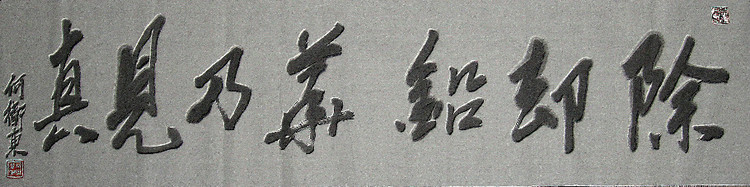 除却鉛華乃見真
何衛東